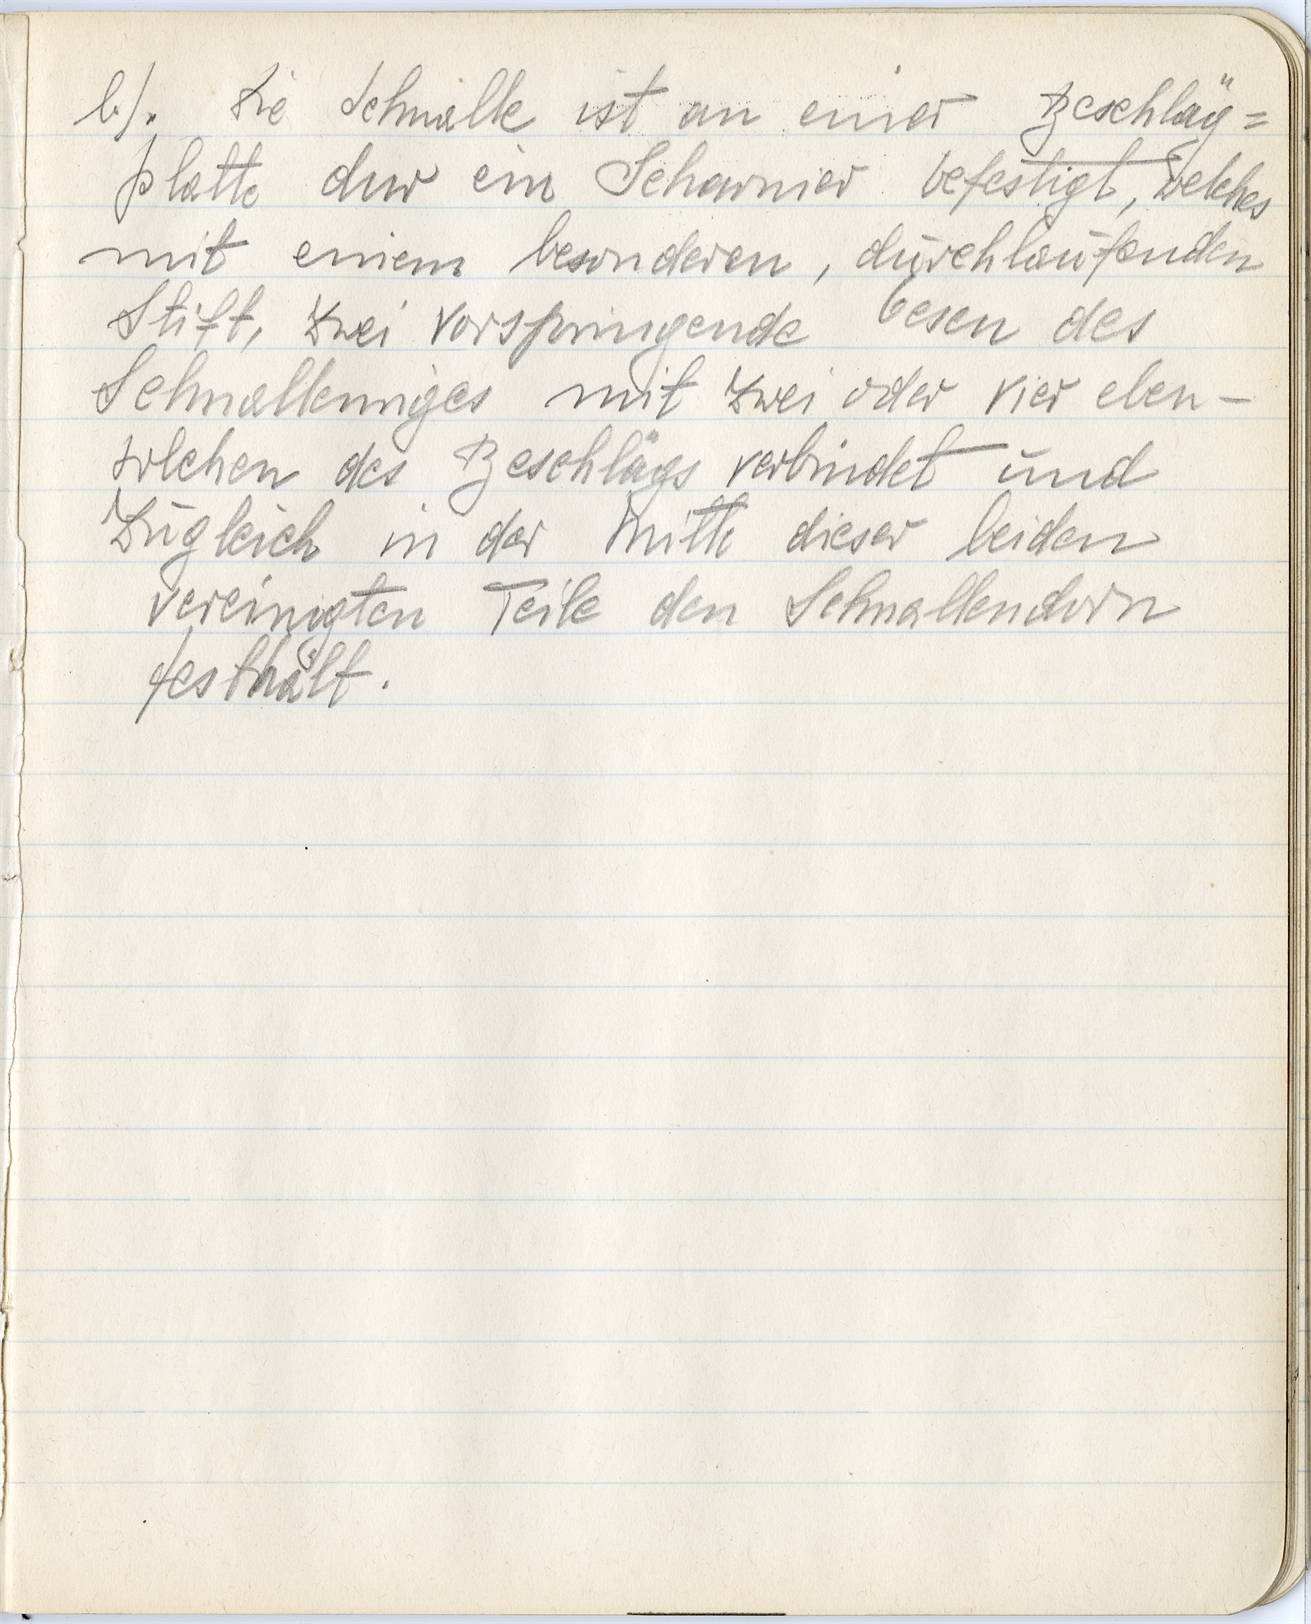 b). Die Schnalle ist an einer Beschläg=
platte dur ein Scharnier befestigt, welches
mit einem besonderen, durchlaufenden
Stift, zwei vorspringende Oesen des
Schnallenniges mit zwei oder vier eben-
solchen des Beschlägs verbindet und
zugleich in der Mitte dieser beiden
vereinigten Teile den Schnallendorn
festhält.